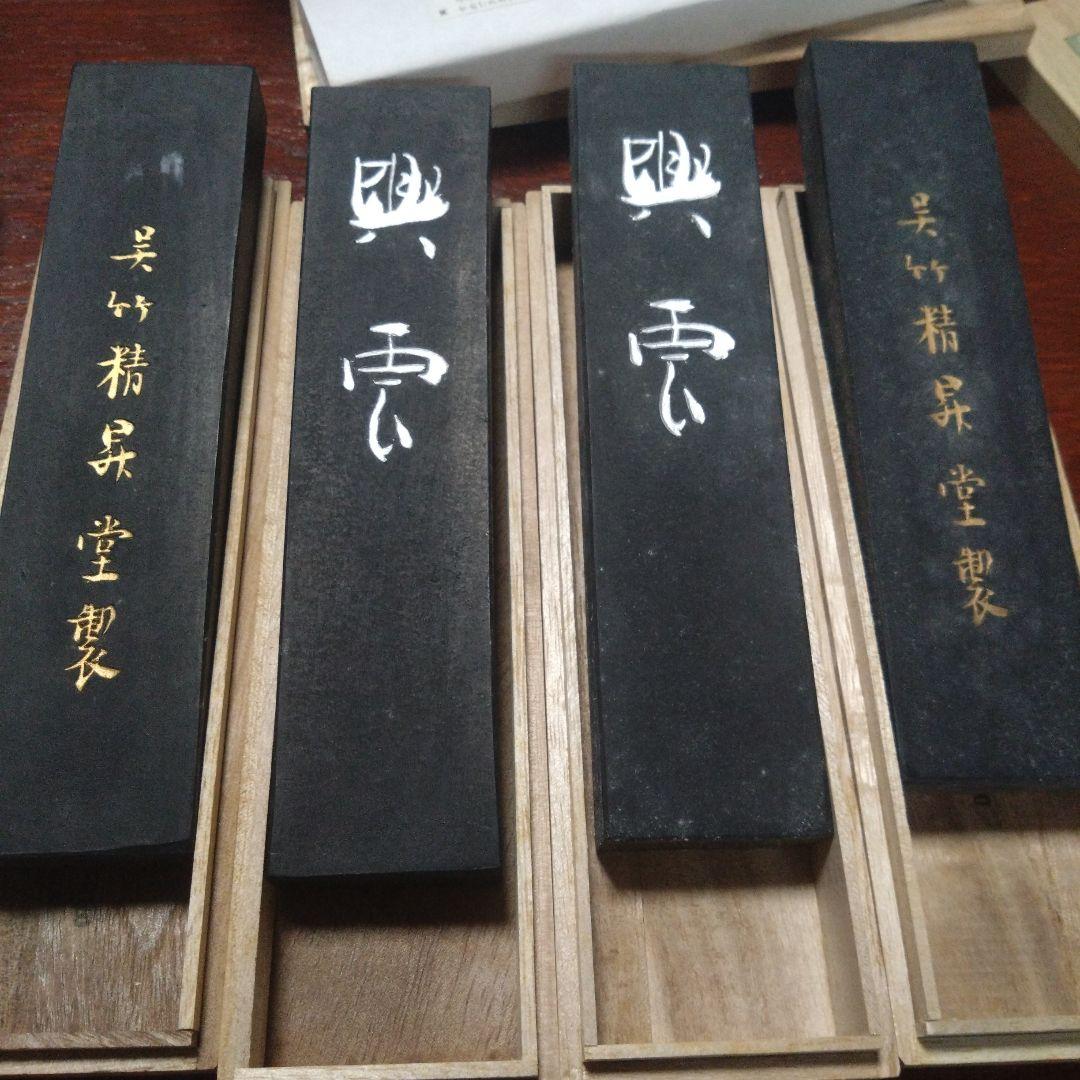 呉竹精昇堂製
興雲
興雲
呉竹精昇堂製